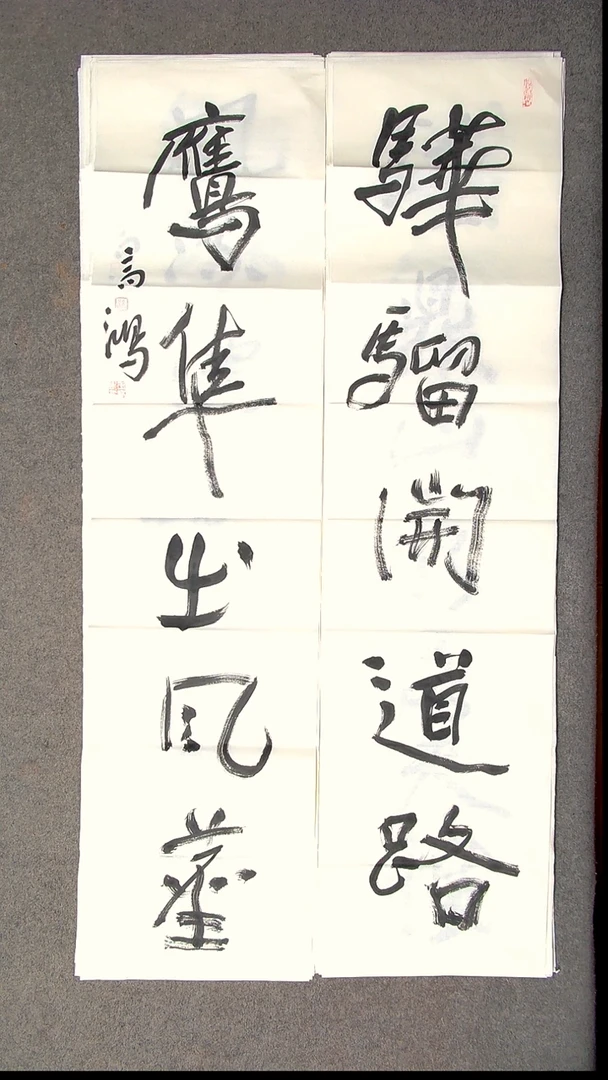 驊騮開道路
鷹隼出風塵
高鴻